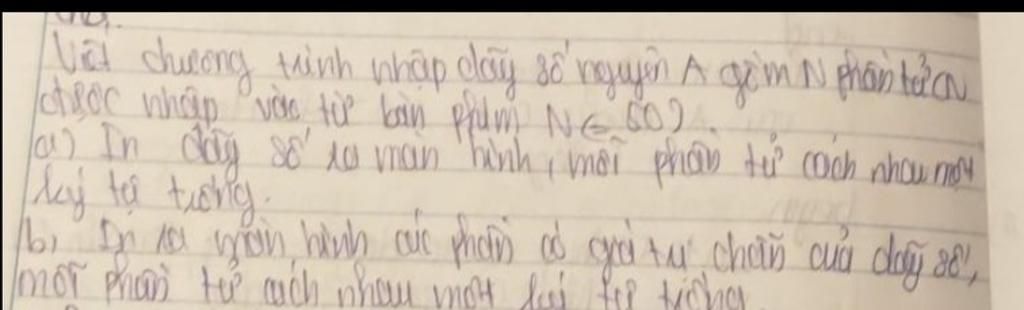 Viết chương trình nhập dãy số nguyên A gồm N phần tử (N
được nhập vào từ bàn phím N ≤ 50).
a) In dãy số ra màn hình, mỗi phần tử cách nhau một
ký tự trống.
b) In ra màn hình các phần có giá trị chẵn của dãy số,
mỗi phần tử cách nhau một ký tự trống